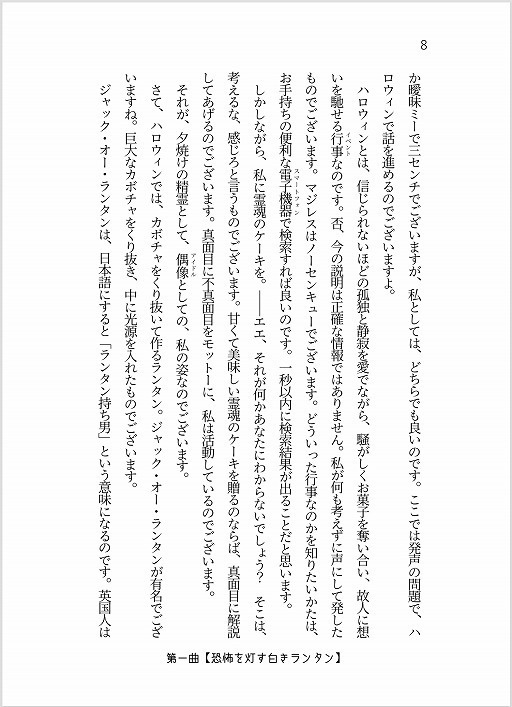 8
か曖昧ミーで三センチでございますが、私としては、どちらでも良いのです。ここでは発声の問題で、ハ
ロウィンで話を進めるのでございますよ。
ハロウィンとは、信じられないほどの孤独と静寂を愛でながら、騒がしくお菓子を奪い合い、故人に想
いを馳せる行事なのです。否、今の説明は正確な情報ではありません。私が何も考えずに声にして発した
イベント
ものでございます。マジレスはノーセンキューでございます。どういった行事なのかを知りたいかたは、
お手持ちの便利な電子機器で検索すれば良いのです。一秒以内に検索結果が出ることだと思います。
スマートフォン
しかしながら、私に霊魂のケーキを。――エエ、それが何かあなたにわからないでしょう？　そこは、
考えるな、感じろと言うものでございます。甘くて美味しい霊魂のケーキを贈るのならば、真面目に解説
してあげるのでございます。真面目に不真面目をモットーに、私は活動しているのでございます。
それが、夕焼けの精霊として、偶像としての、私の姿なのでございます。
アイドル
さて、ハロウィンでは、カボチャをくり抜いて作るランタン。ジャック・オー・ランタンが有名でござ
いますね。巨大なカボチャをくり抜き、中に光源を入れたものでございます。
ジャック・オー・ランタンは、日本語にすると「ランタン持ち男」という意味になるのです。英国人は
第一曲【恐怖を灯す白きランタン】